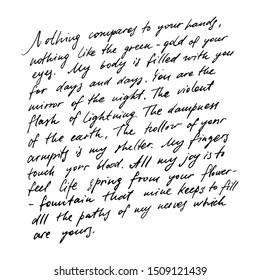 Nothing compares to your hands,
nothing like the green-gold of your
eyes. My body is filled with you
for days and days. You are the
mirror of the night. The violent
flash of lightning. The dampness
of the earth. The hollow of your
armpits is my shelter. My fingers
touch your blood. All my joy is to
feel life spring from your flower-
-fountain that mine keeps to fill
all the paths of my nerves which
are yours.
shutterstock.com · 1509121439